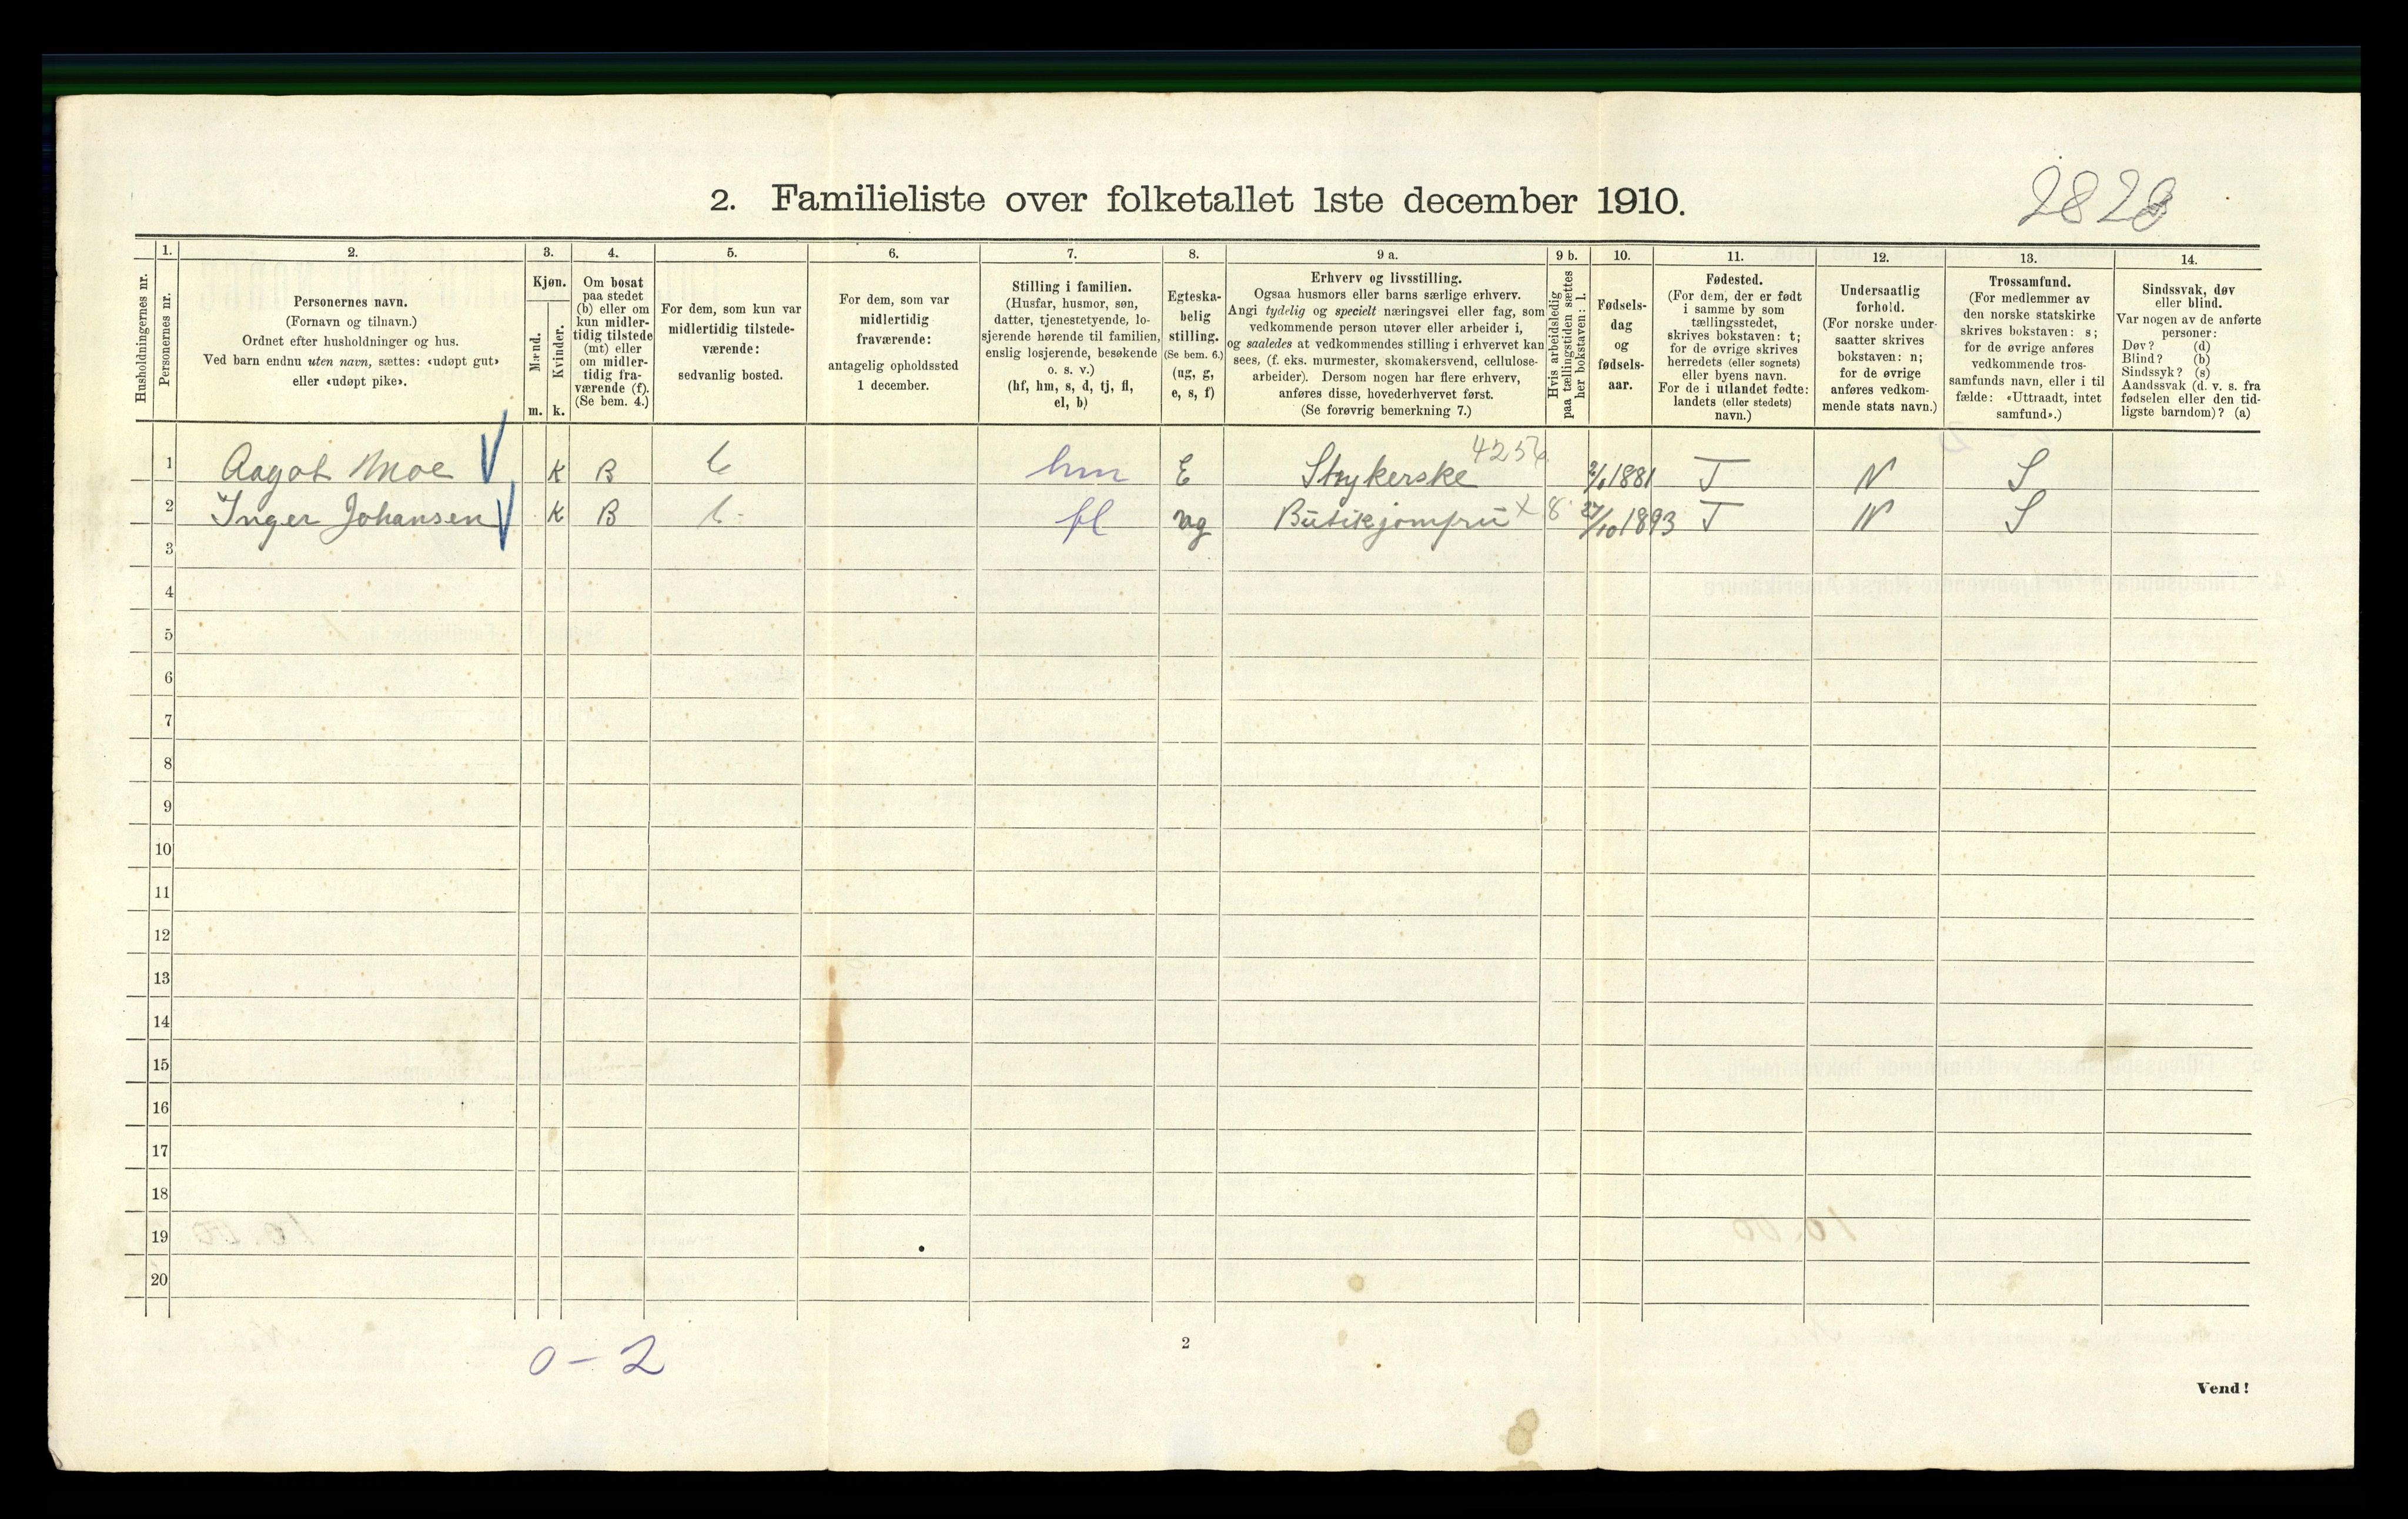 2. Familieliste over folketallet 1ste december 1910.
282
Husholdningernes nr.
1.
Personernes nr.
2.
Personernes navn.
(Fornavn og tilnavn.)
Ordnet efter husholdninger og hus.
Ved barn endnu uten navn, sættes: «udøpt gut»
eller «udøpt pike».
3.
Kjøn.
Mænd.
m.
Kvinder.
k.
4.
Om bosat
paa stedet
(b) eller om
kun midler-
tidig tilstede
(mt) eller
om midler-
tidig fra-
værende (f).
(Se bem. 4.)
5.
For dem, som kun var
midlertidig tilstede-
værende:
sedvanlig bosted.
6.
For dem, som var
midlertidig
fraværende:
antagelig opholdssted
1 december.
7.
Stilling i familien.
(Husfar, husmor, søn,
datter, tjenestetyende, lo-
sjerende hørende til familien,
enslig losjerende, besøkende
o. s. v.)
(hf, hm, s, d, tj, fl,
el, b)
8.
Egteska-
belig
stilling.
(Se bem. 6.)
(ug, g,
e, s, f)
9 a.
Erhverv og livsstilling.
Ogsaa husmors eller barns særlige erhverv.
Angi tydelig og specielt næringsvei eller fag, som
vedkommende person utøver eller arbeider i,
og saaledes at vedkommendes stilling i erhvervet kan
sees, (f. eks. murmester, skomakersvend, cellulose-
arbeider). Dersom nogen har flere erhverv,
anføres disse, hovederhvervet først.
(Se forøvrig bemerkning 7.)
9 b.
Hvis arbeidsledig
paa tællingstiden sættes
her bokstaven: l.
10.
Fødsels-
dag
og
fødsels-
aar.
11.
Fødested.
(For dem, der er født
i samme by som
tællingsstedet,
skrives bokstaven: t;
for de øvrige skrives
herredets (eller sognets)
eller byens navn.
For de i utlandet fødte:
landets (eller stedets)
navn.)
12.
Undersaatlig
forhold.
(For norske under-
saatter skrives
bokstaven: n;
for de øvrige
anføres vedkom-
mende stats navn.)
13.
Trossamfund.
(For medlemmer av
den norske statskirke
skrives bokstaven: s;
for de øvrige anføres
vedkommende tros-
samfunds navn, eller i til
fælde: «Uttraadt, intet
samfund».)
14.
Sindssvak, døv
eller blind.
Var nogen av de anførte
personer:
Døv? (d)
Blind? (b)
Sindssyk? (s)
Aandssvak (d. v. s. fra
fødselen eller den tid-
ligste barndom)? (a)
1 Aagot Moe K B hm E Strykerske 4256 1881 T N S
2 Inger Johansen K B fl ug Butikjomfru x 8 27/10 1893 T N S
3
4
5
6
7
8
9
10
11
12
13
14
15
16
17
18
19
20
0 – 2
2
Vend!